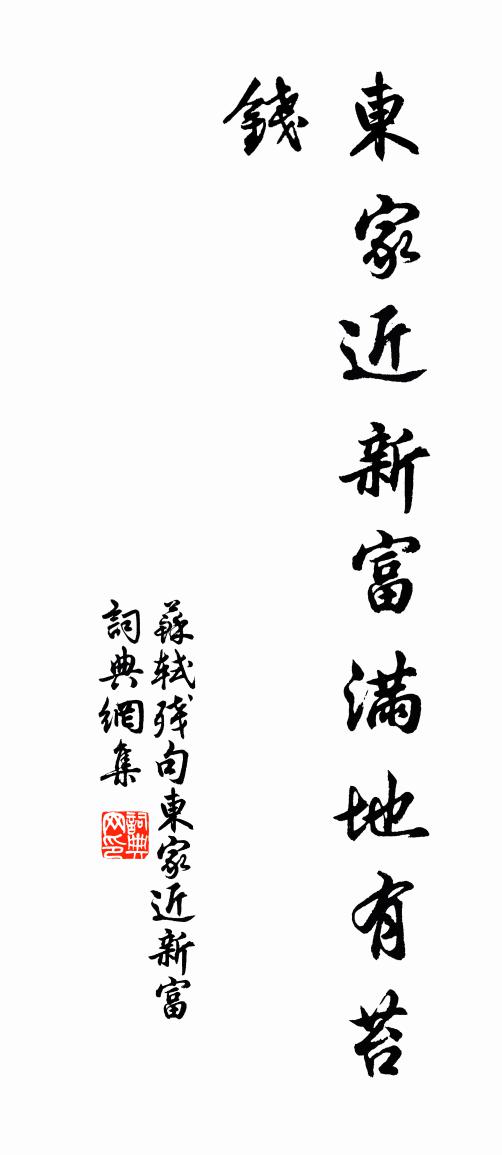 東家近新富滿地有苔
錢
蘇軾殘句東家近新富
詞典網集
詞典网印